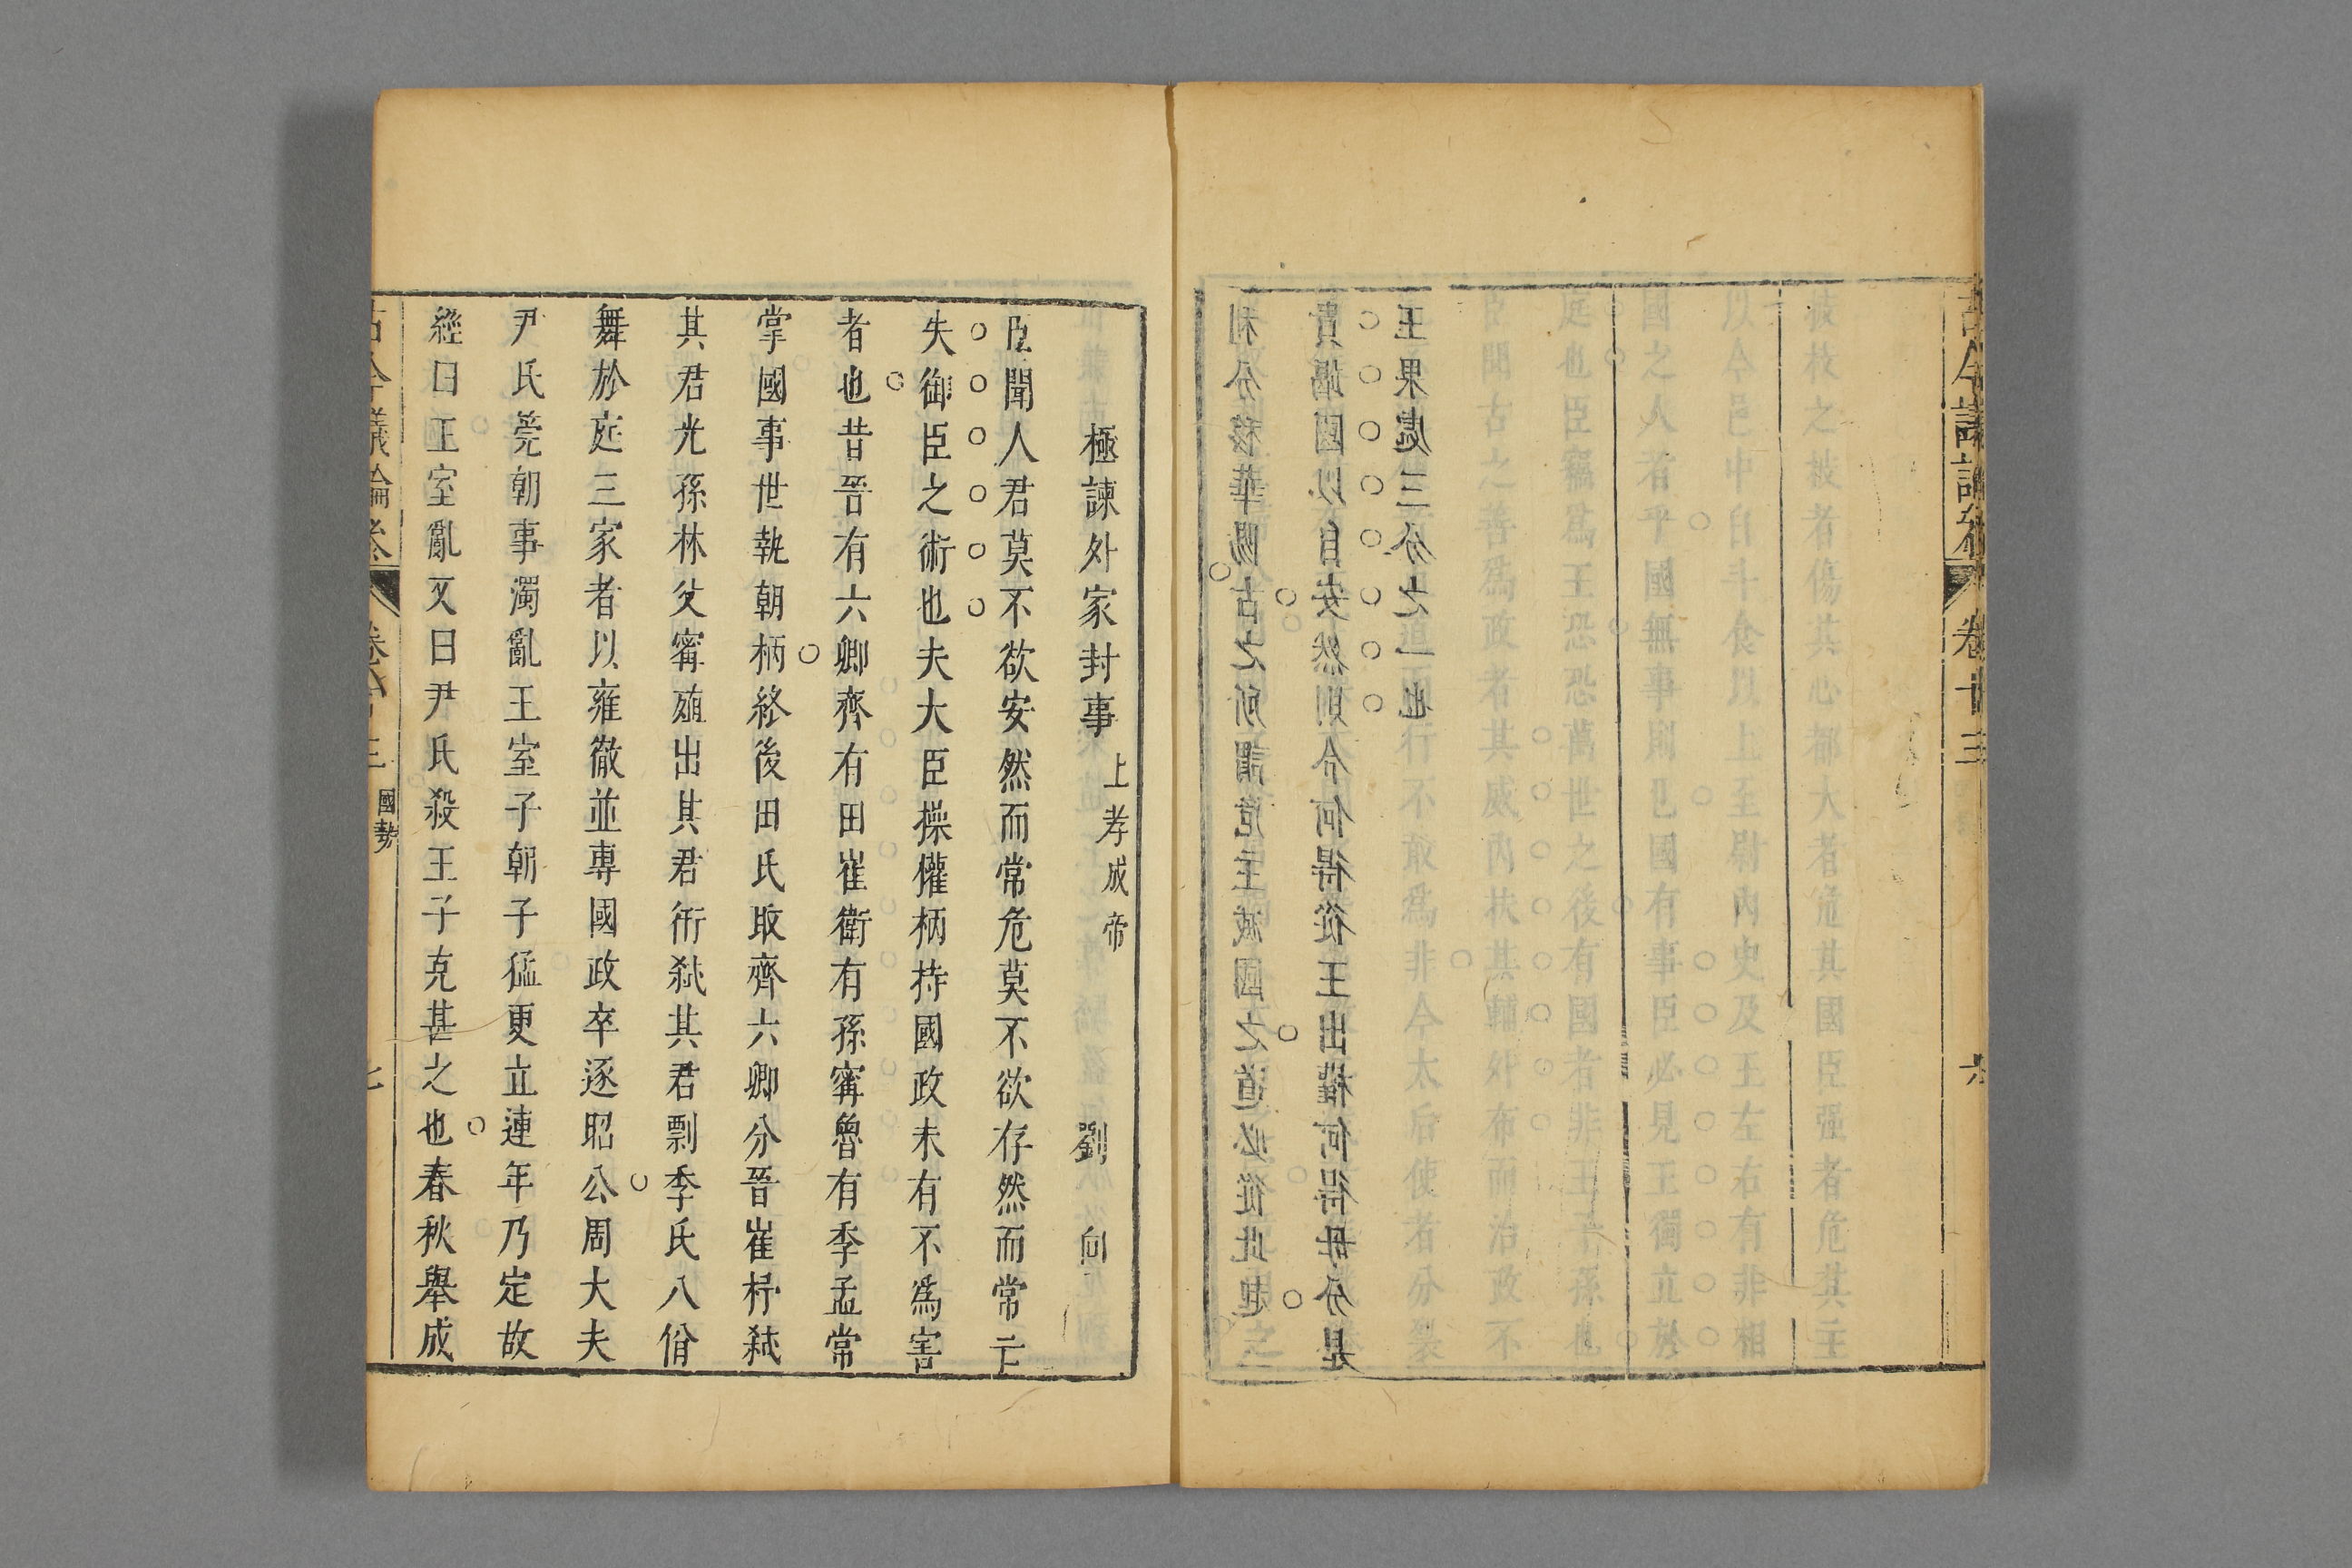 古今議論參 卷十三 六
之披者傷其心都大者危其國臣强者危其主
以今邑中自斗食以上至尉內史及王左右有非相
國之人者乎國無事則已國有事臣必見王獨立於
庭也臣竊爲王恐恐萬世之後有國者非王子孫也
臣聞古之善爲政者其威內扶其輔外布而治政不
道而行不敢爲非今太后使者分裂
王果處三分之一也
貴竭國以自安然則令何得從王出權何得毋分是
利分移華陽古之所謂危主滅國之道必從此起
極諫外家封事 上孝成帝 劉向
臣聞人君莫不欲安然而常危莫不欲存然而常亡
失御臣之術也夫大臣操權柄持國政未有不爲害
者也昔晉有六卿齊有田崔衛有孫寗魯有季孟常
掌國事世執朝柄終後田氏取齊六卿分晉崔杼弒
其君光孫林父寗殖出其君衎弒其君剽季氏八佾
舞於庭三家者以雍徹並專國政卒逐昭公周大夫
尹氏筦朝事濁亂王室子朝子猛更立連年乃定故
經曰王室亂又曰尹氏殺王子克甚之也春秋舉成
古今議論參 卷十三 國勢 七